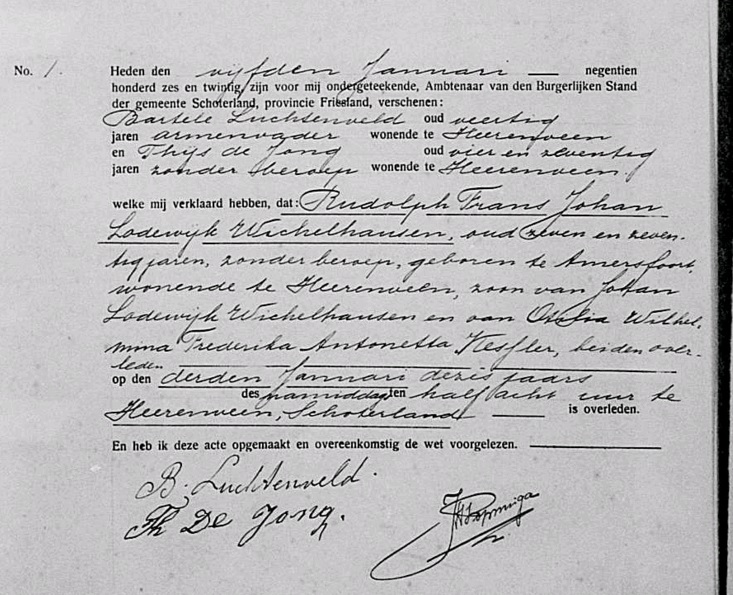 No. 1. Heden den vijfden Januari — negentien
honderd zes en twintig, zijn voor mij ondergeteekende, Ambtenaar van den Burgerlijken Stand
der gemeente Schoterland, provincie Friesland, verschenen:
Bartele Luchtenveld oud veertig
jaren armenvader wonende te Heerenveen
en Thijs de Jong oud vier en zeventig
jaren zonder beroep wonende te Heerenveen,
welke mij verklaard hebben, dat: Rudolph Frans Johan
Lodewijk Wichelhausen, oud zeven en zeven-
tig jaren, zonder beroep, geboren te Amersfoort,
wonende te Heerenveen, zoon van Johan
Lodewijk Wichelhausen en van Wilhel-
mina Frederika Antonetta Kessler, beiden over-
leden
op den derden Januari dezes jaars
des namiddags ten half acht uur te
Heerenveen, Schoterland — is overleden.
En heb ik deze acte opgemaakt en overeenkomstig de wet voorgelezen.
B. Luchtenveld.
Th De Jong.